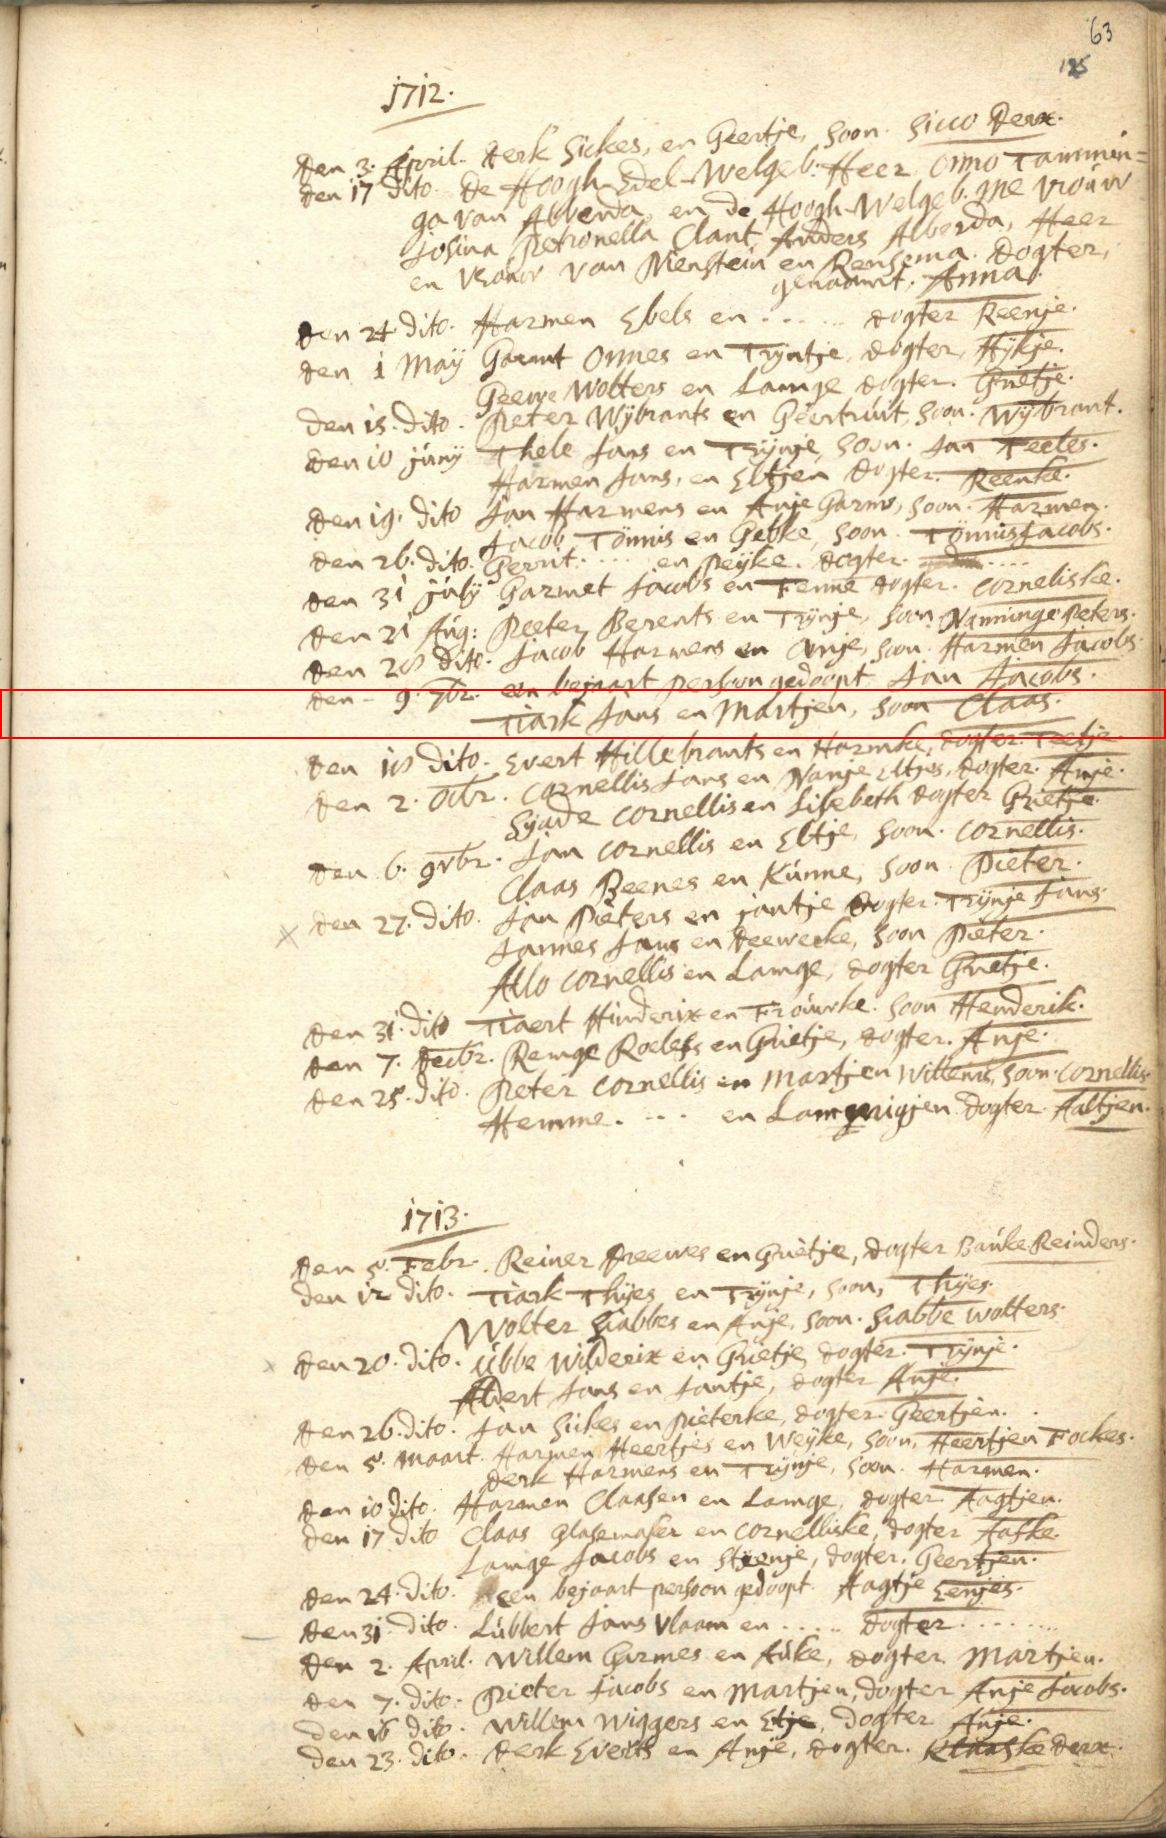 63
125
1712.
den 3. April. derk Sickes, en Geertje, Soon. Sicco Derx.
den 17 dito. De Hoogh-Edel-Welgeb. Heer Onno Tammin=
ga van Alberda, en de Hoogh-Welgeb. me vrouw
Josina Petronella Clant, Anders Alberda, Heer
en vrouw van Nienstein en Rensema. Dogter,
genaamt. Anna.
den 24 dito. Harmen Ebels en ..... dogter Reenje.
den 1 Maÿ Garmt Onnes en Trÿntje, dogter, Hÿkje.
Geewe Wolters en Lamge dogter. Grietje.
den 15. dito. Pieter Wÿbrants en Geertruit, Soon. Wÿbrant.
den 10 junÿ Thele Jans en Trÿnje, Soon. Jan Teeles.
Harmen Jans, en Eltjen dogter. Reenke.
den 19. dito Jan Harmens en Anje Garms, Soon. Harmen.
Jacob Tönnis en Gebke, Soon. Tönnis Jacobs.
den 26. dito. Gerrit.... en Peÿke. dogter. ....
den 31 julÿ Garmet Jacobs en Fenne dogter. Corneliske.
den 21 Aug: Peeter Berents en Trÿnje, Soon Nanninge Peters.
den 28 dito. Jacob Harmens en Anje, Soon. Harmen Jacobs
den - 9. 7br. een bejaart persoon gedoopt Jan Jacobs.
Tiark Jans en Martjen, Soon Claas.
den 18 dito. Evert Hillebrants en Harmke, dogter. Teetje.
den 2. Octbr. Cornellis Jans en Nanje Eltjes, dogter. Anje.
Sÿade Cornellis en Lisebeth dogter Grietje.
den 6. 9vbr. Jan Cornellis en Eltje, Soon. Cornellis.
Claas Beenes en Kunne, Soon. Pieter.
den 27. dito. Jan Pieters en jantje dogter. Trÿnje Jans.
Jannes Jans en Deewerke, Soon Pieter.
Allo Cornellis en Lamge, dogter Grietje.
den 31. dito Tiaert Hinderix en Frouwke. Soon Henderik.
den 7. Decbr. Remge Roelefs en Grietje, dogter. Anje.
den 25. dito. Pieter Cornellis en Martjen Willems, Soon. Cornellis
Hemme. ... en dogter. Aaltjen.
1713.
den 5. Febr. Reiner Dreewes en Grietje, dogter Bauke Reinders.
den 12 dito. Tiark Thÿes en Trÿnje, Soon, Thÿes.
Wolter Siabbes en Anje, Soon. Siabbe Wolters.
den 20. dito. Ubbe Wilderix en Grietje, dogter. Trÿnje.
Aldert Jans en Jantje, dogter Anje.
den 26. dito. Jan Sickes en Pieterke, dogter. Geertjen.
den 5. Maart. Harmen Heertjes en Weÿke, Soon, Heertjen Fockes.
derk Harmens en Trÿnje, Soon. Harmen.
den 10 dito. Harmen Claasen en Lamge, dogter. Aagtjen.
den 17 dito Claas Glasemaker en Cornelliske, dogter Aafke.
Lamge Jacobs en Stÿenje, dogter. Geertjen.
den 24. dito. een bejaart persoon gedoopt. Aagtje Eenjes.
den 31 dito. Lubbert Jans Vlaam en ..... dogter .......
den 2. April. Willem Garmes en Auke, dogter. Martjen.
den 7. dito. Pieter Jacobs en Martjen, dogter Anje Jacobs.
den 16 dito. Willem Wiggers en Etje, dogter Anje.
den 23. dito. derk Everts en Anje, dogter. Klaaske derx.